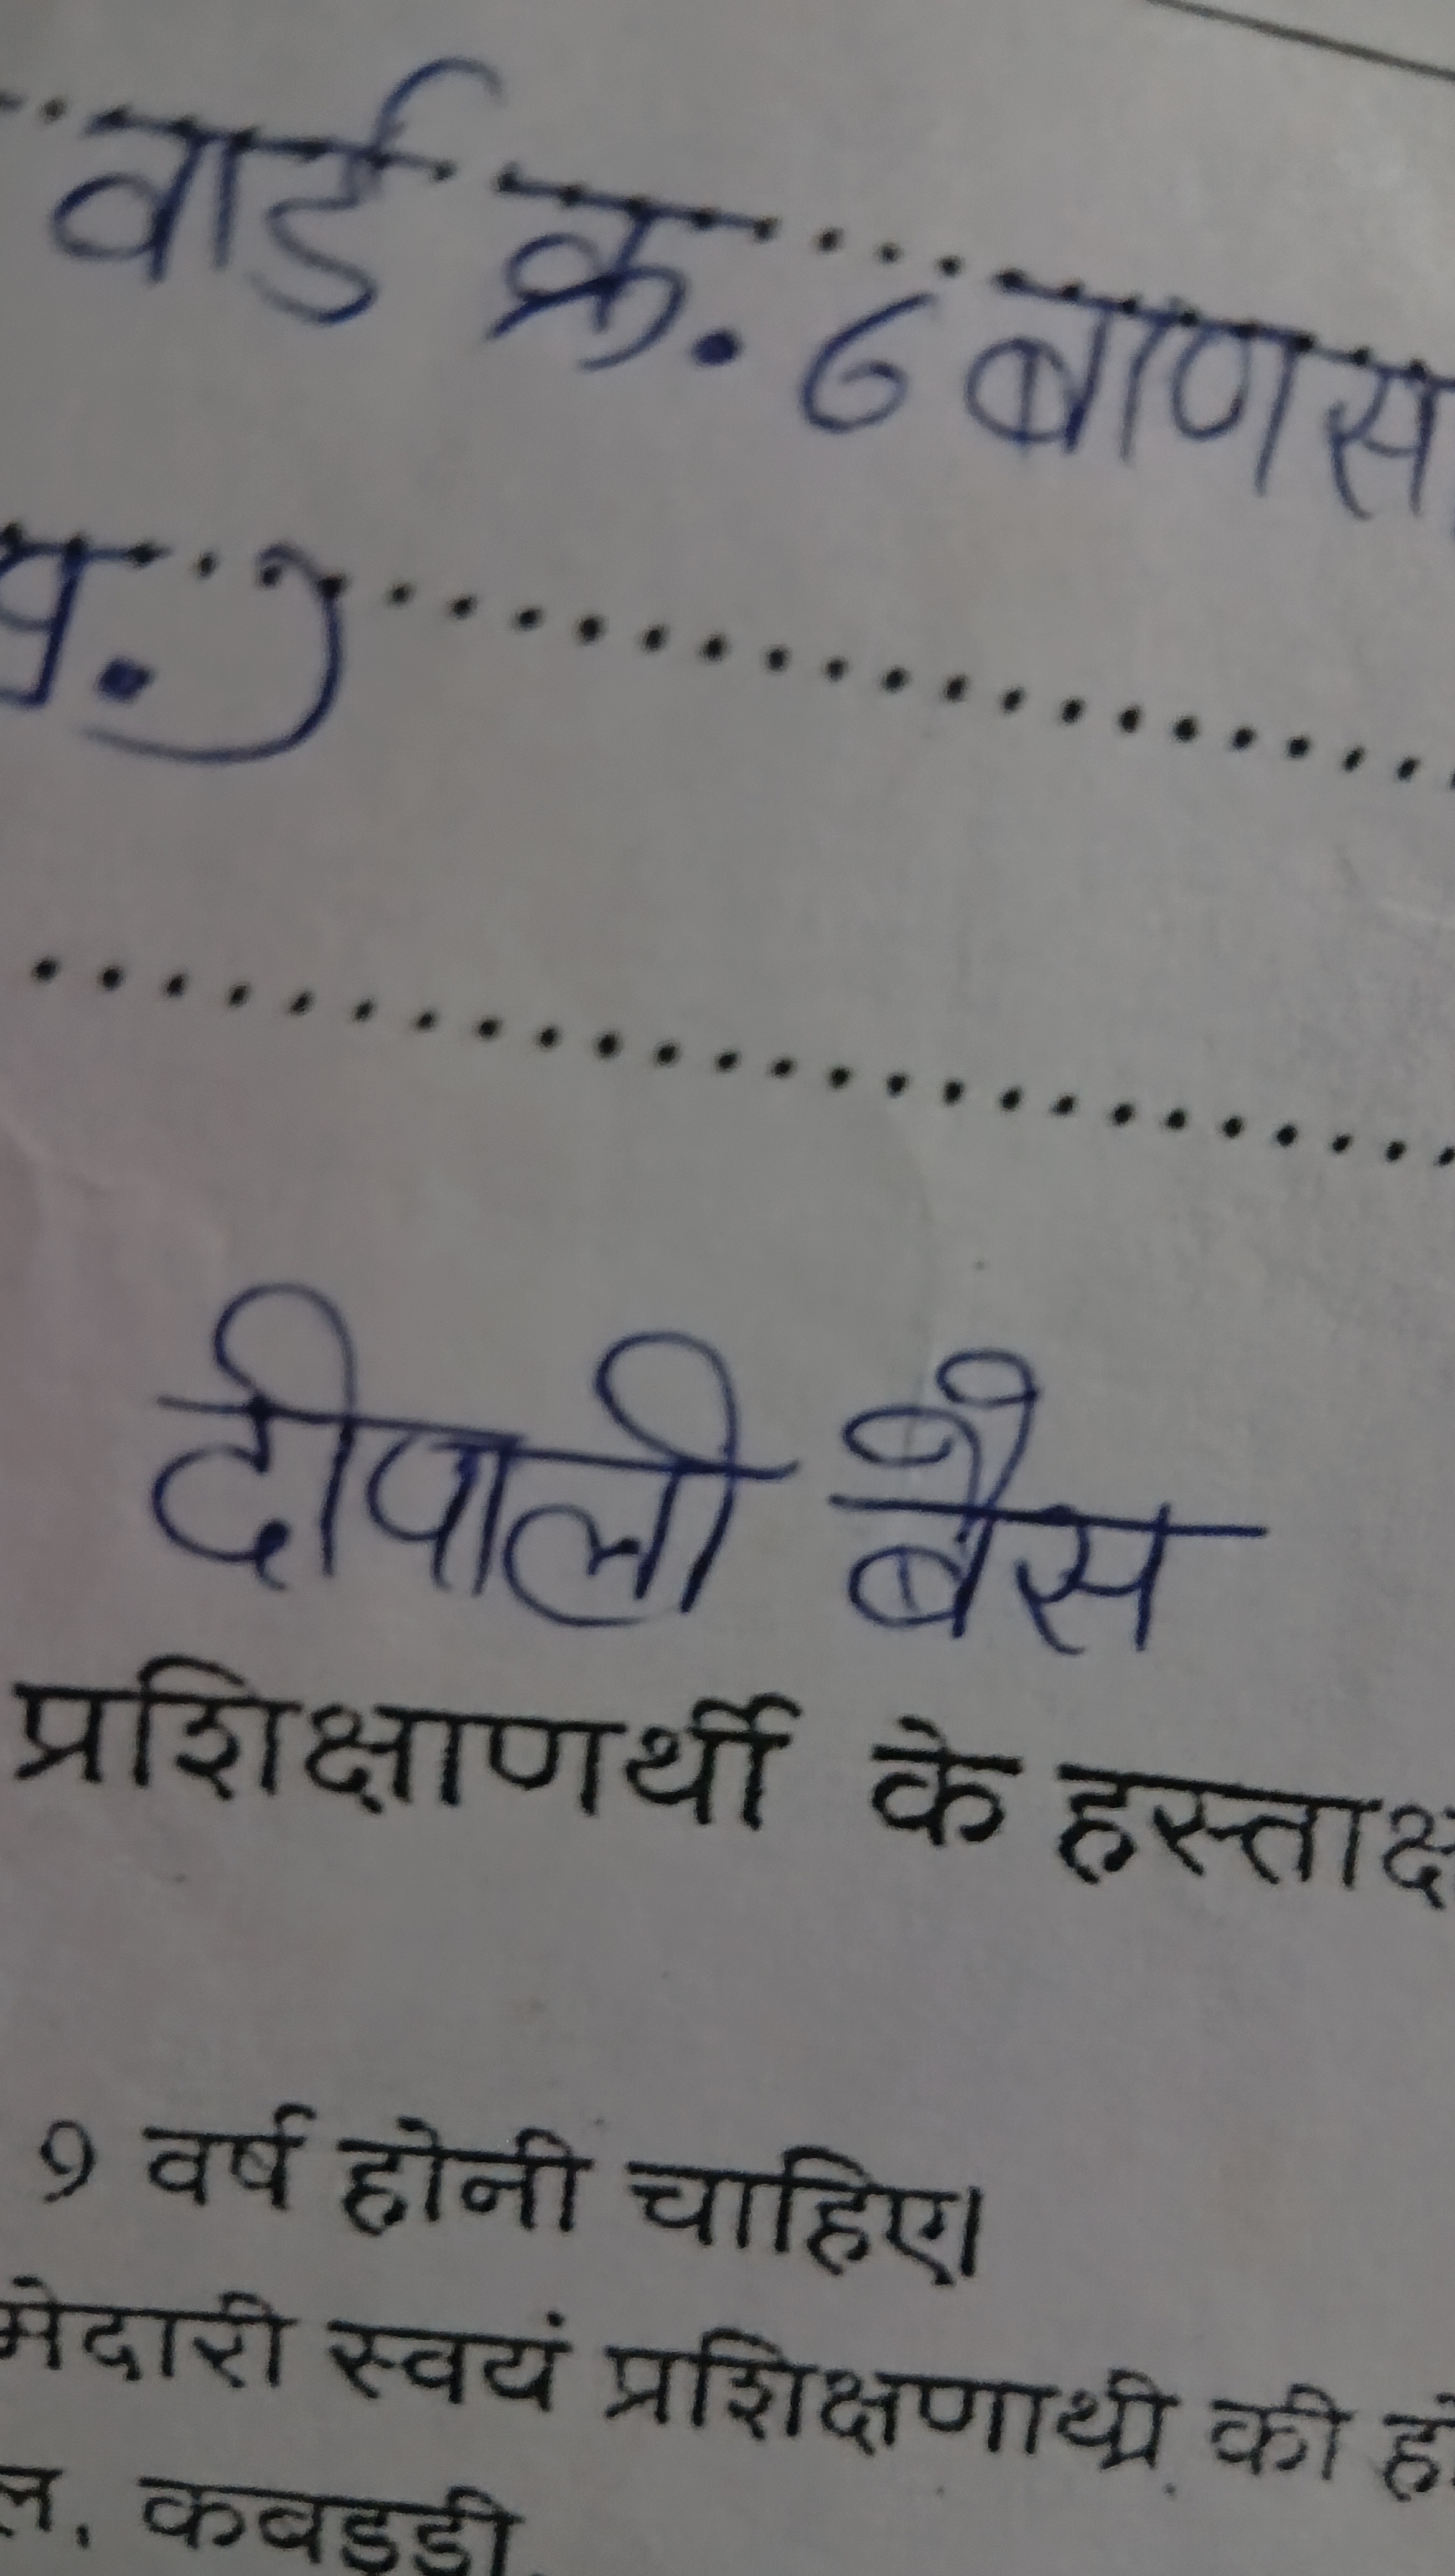 वार्ड क्र. 6 बाणस
प्र.)
दीपाली बैस
प्रशिक्षाणर्थी के हस्ताक्ष
9 वर्ष होनी चाहिए।
मेदारी स्वयं प्रशिक्षणार्थी की हो
ल, कबड्डी,